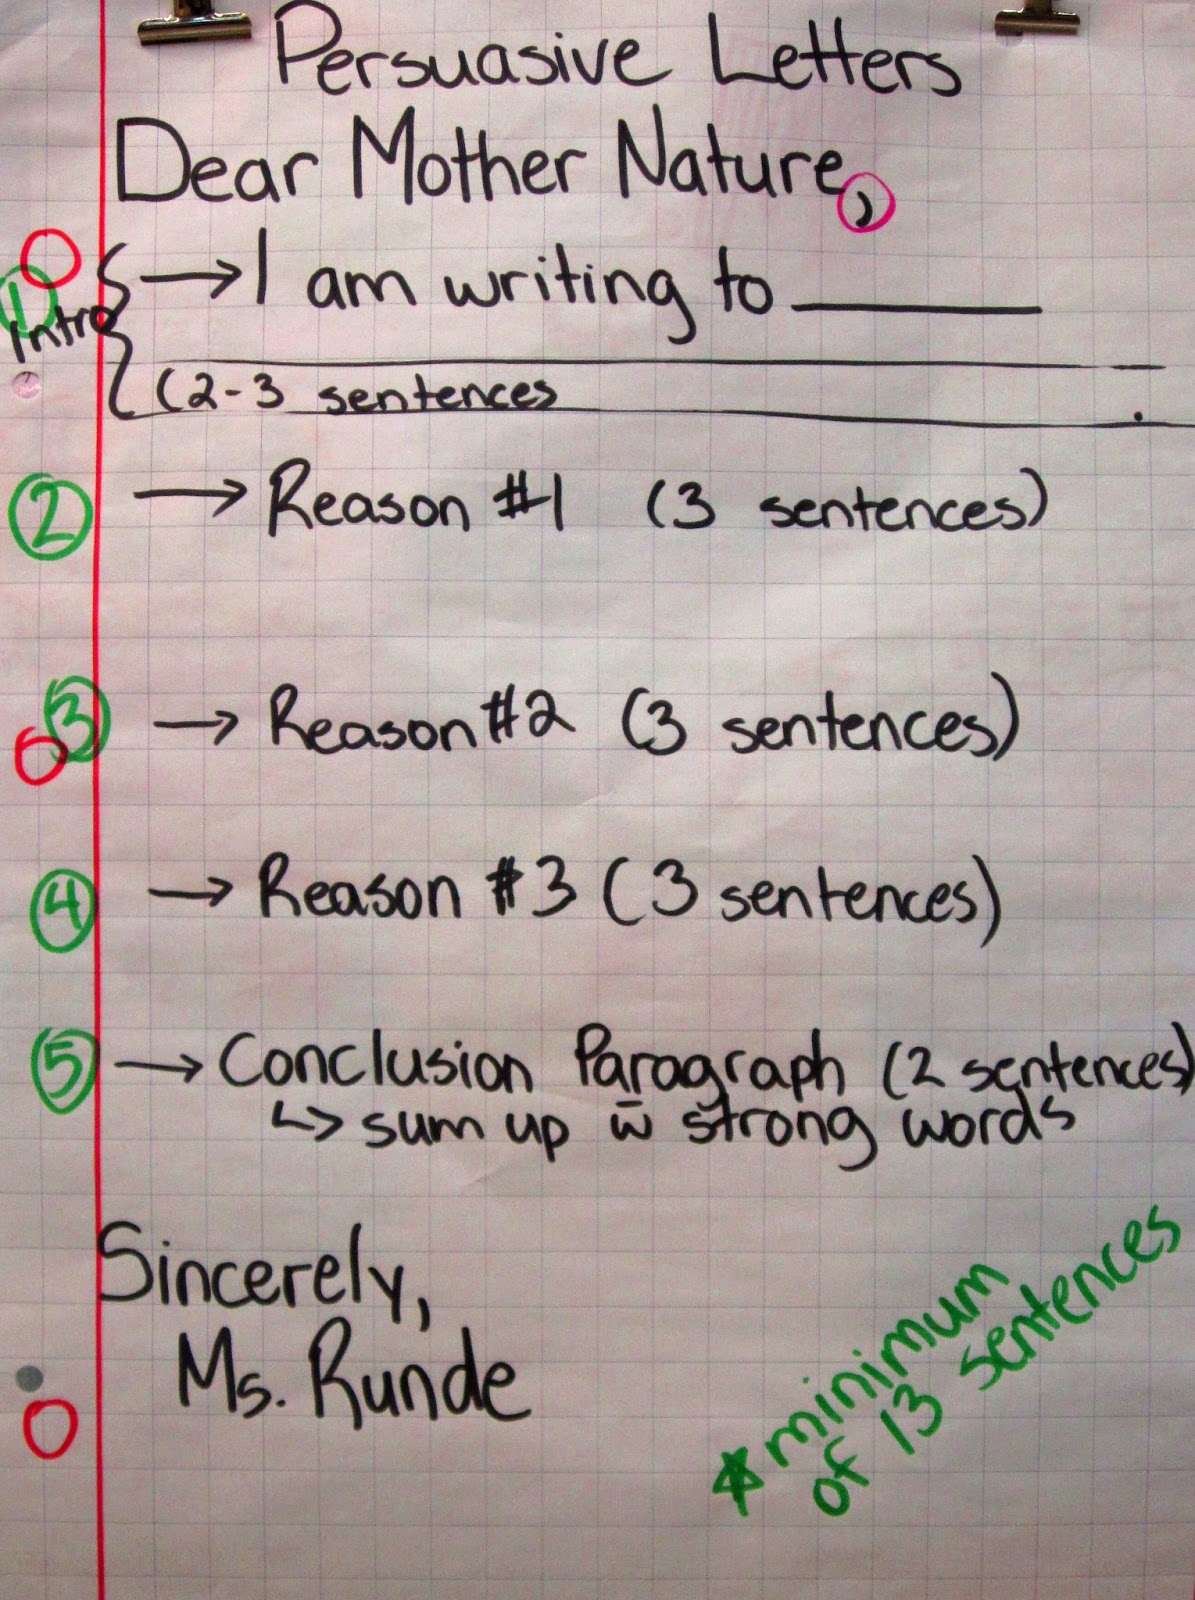 Persuasive Letters
Dear Mother Nature,
1 Intro → I am writing to ________
(2-3 sentences .
2 → Reason #1 (3 sentences)
3 → Reason #2 (3 sentences)
4 → Reason #3 (3 sentences)
5 → Conclusion Paragraph (2 sentences)
↳ sum up w̄ strong words
Sincerely,
Ms. Runde
* minimum
of 13 sentences